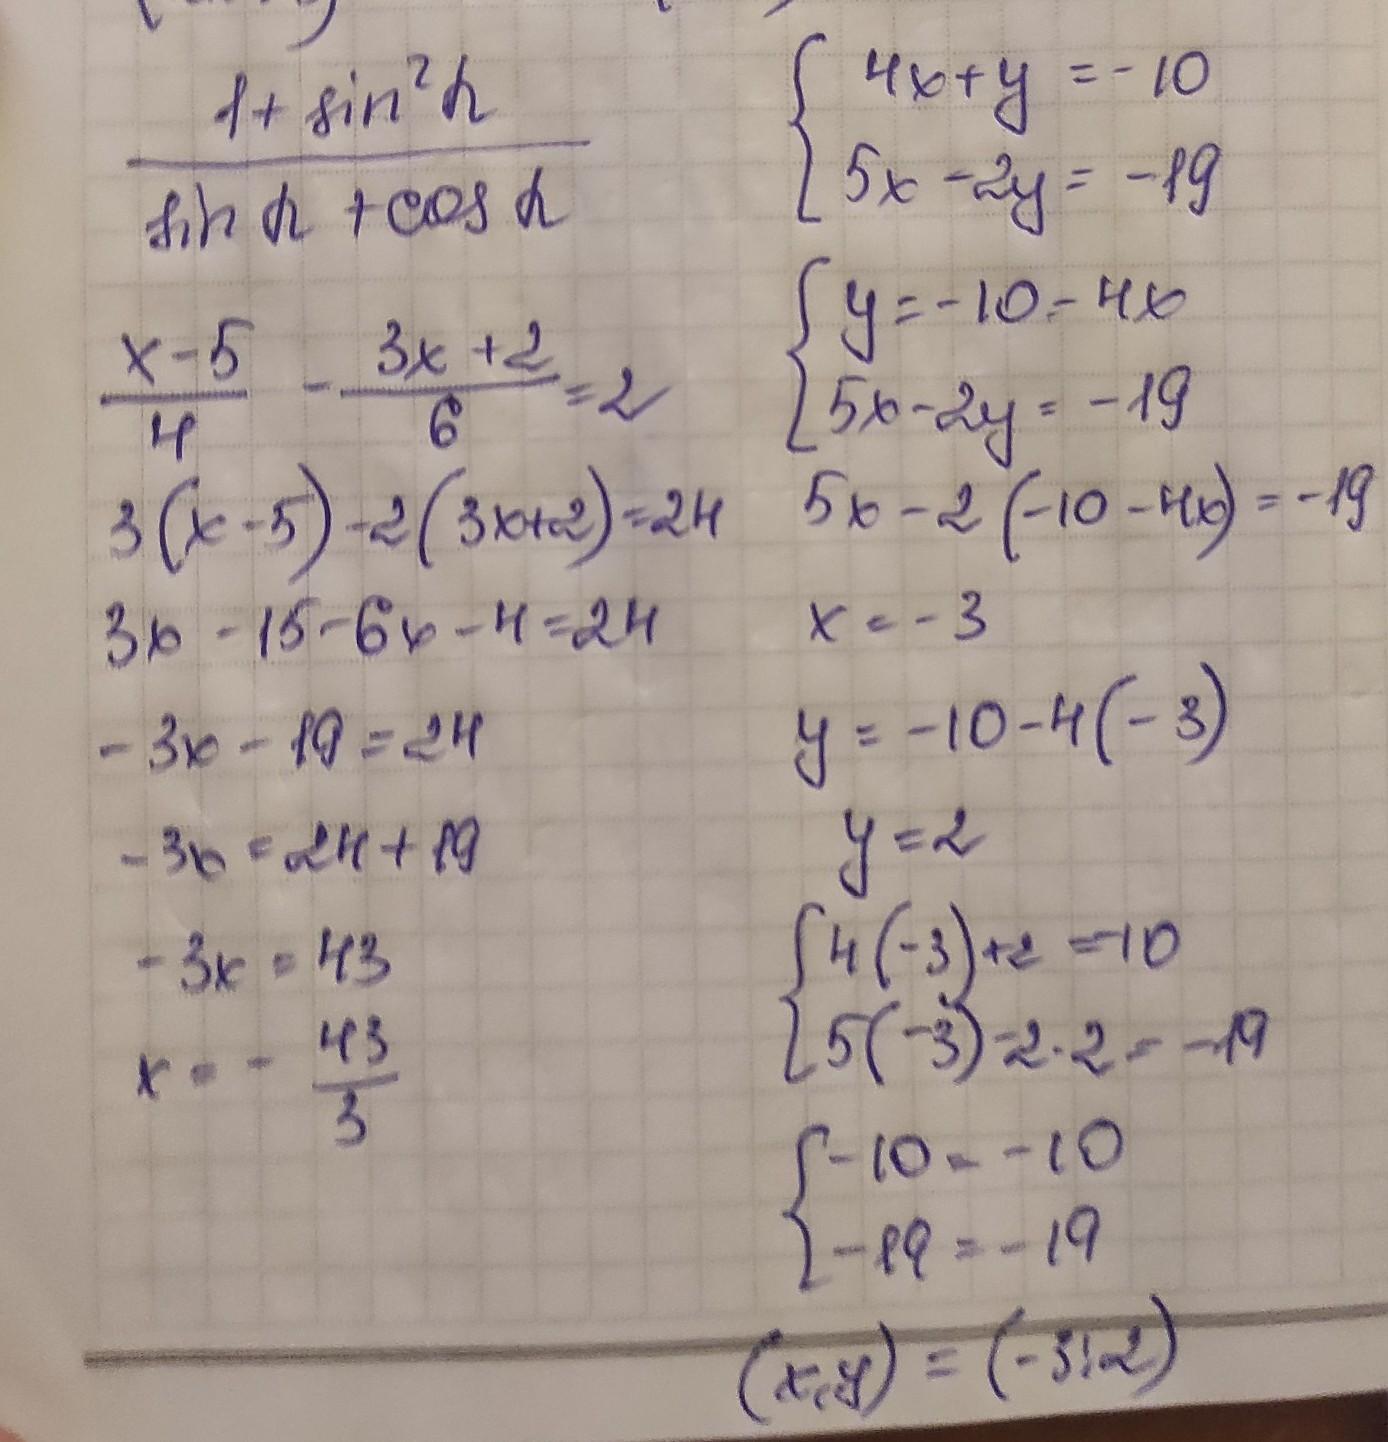 1 + sin²α
sin α + cos α
x - 5 / 4 - 3x + 2 / 6 = 2
3(x - 5) - 2(3x + 2) = 24
3x - 15 - 6x - 4 = 24
- 3x - 19 = 24
- 3x = 24 + 19
- 3x = 43
x = - 43 / 3
{ 4x + y = - 10
5x - 2y = - 19
{ y = - 10 - 4x
5x - 2y = - 19
5x - 2(-10 - 4x) = - 19
x = - 3
y = - 10 - 4(- 3)
y = 2
{ 4(-3) + 2 = -10
5(-3) - 2 · 2 = - 19
{ - 10 = - 10
- 19 = - 19
(x, y) = (- 3; 2)